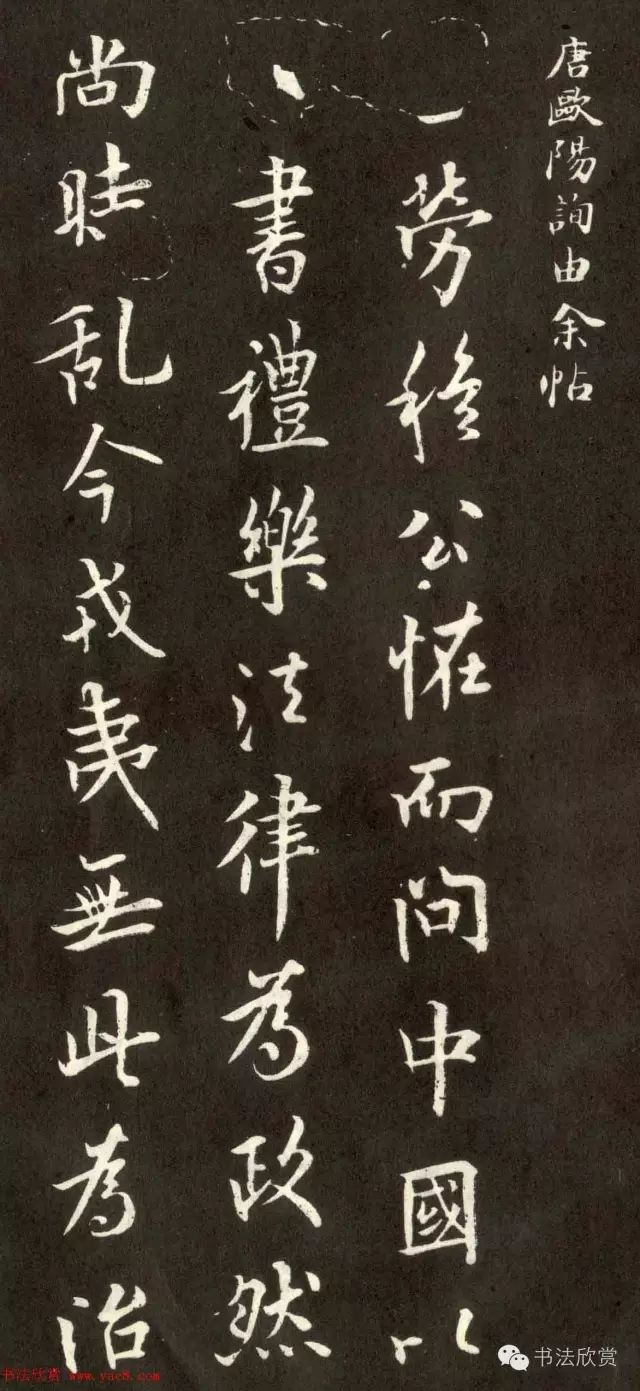 唐歐陽詢由余帖
勞穆公怪而問中國以
書禮樂法律為政然
尚時乱今戎夷無此為治
书法欣赏
书法欣赏 www.yac8.com